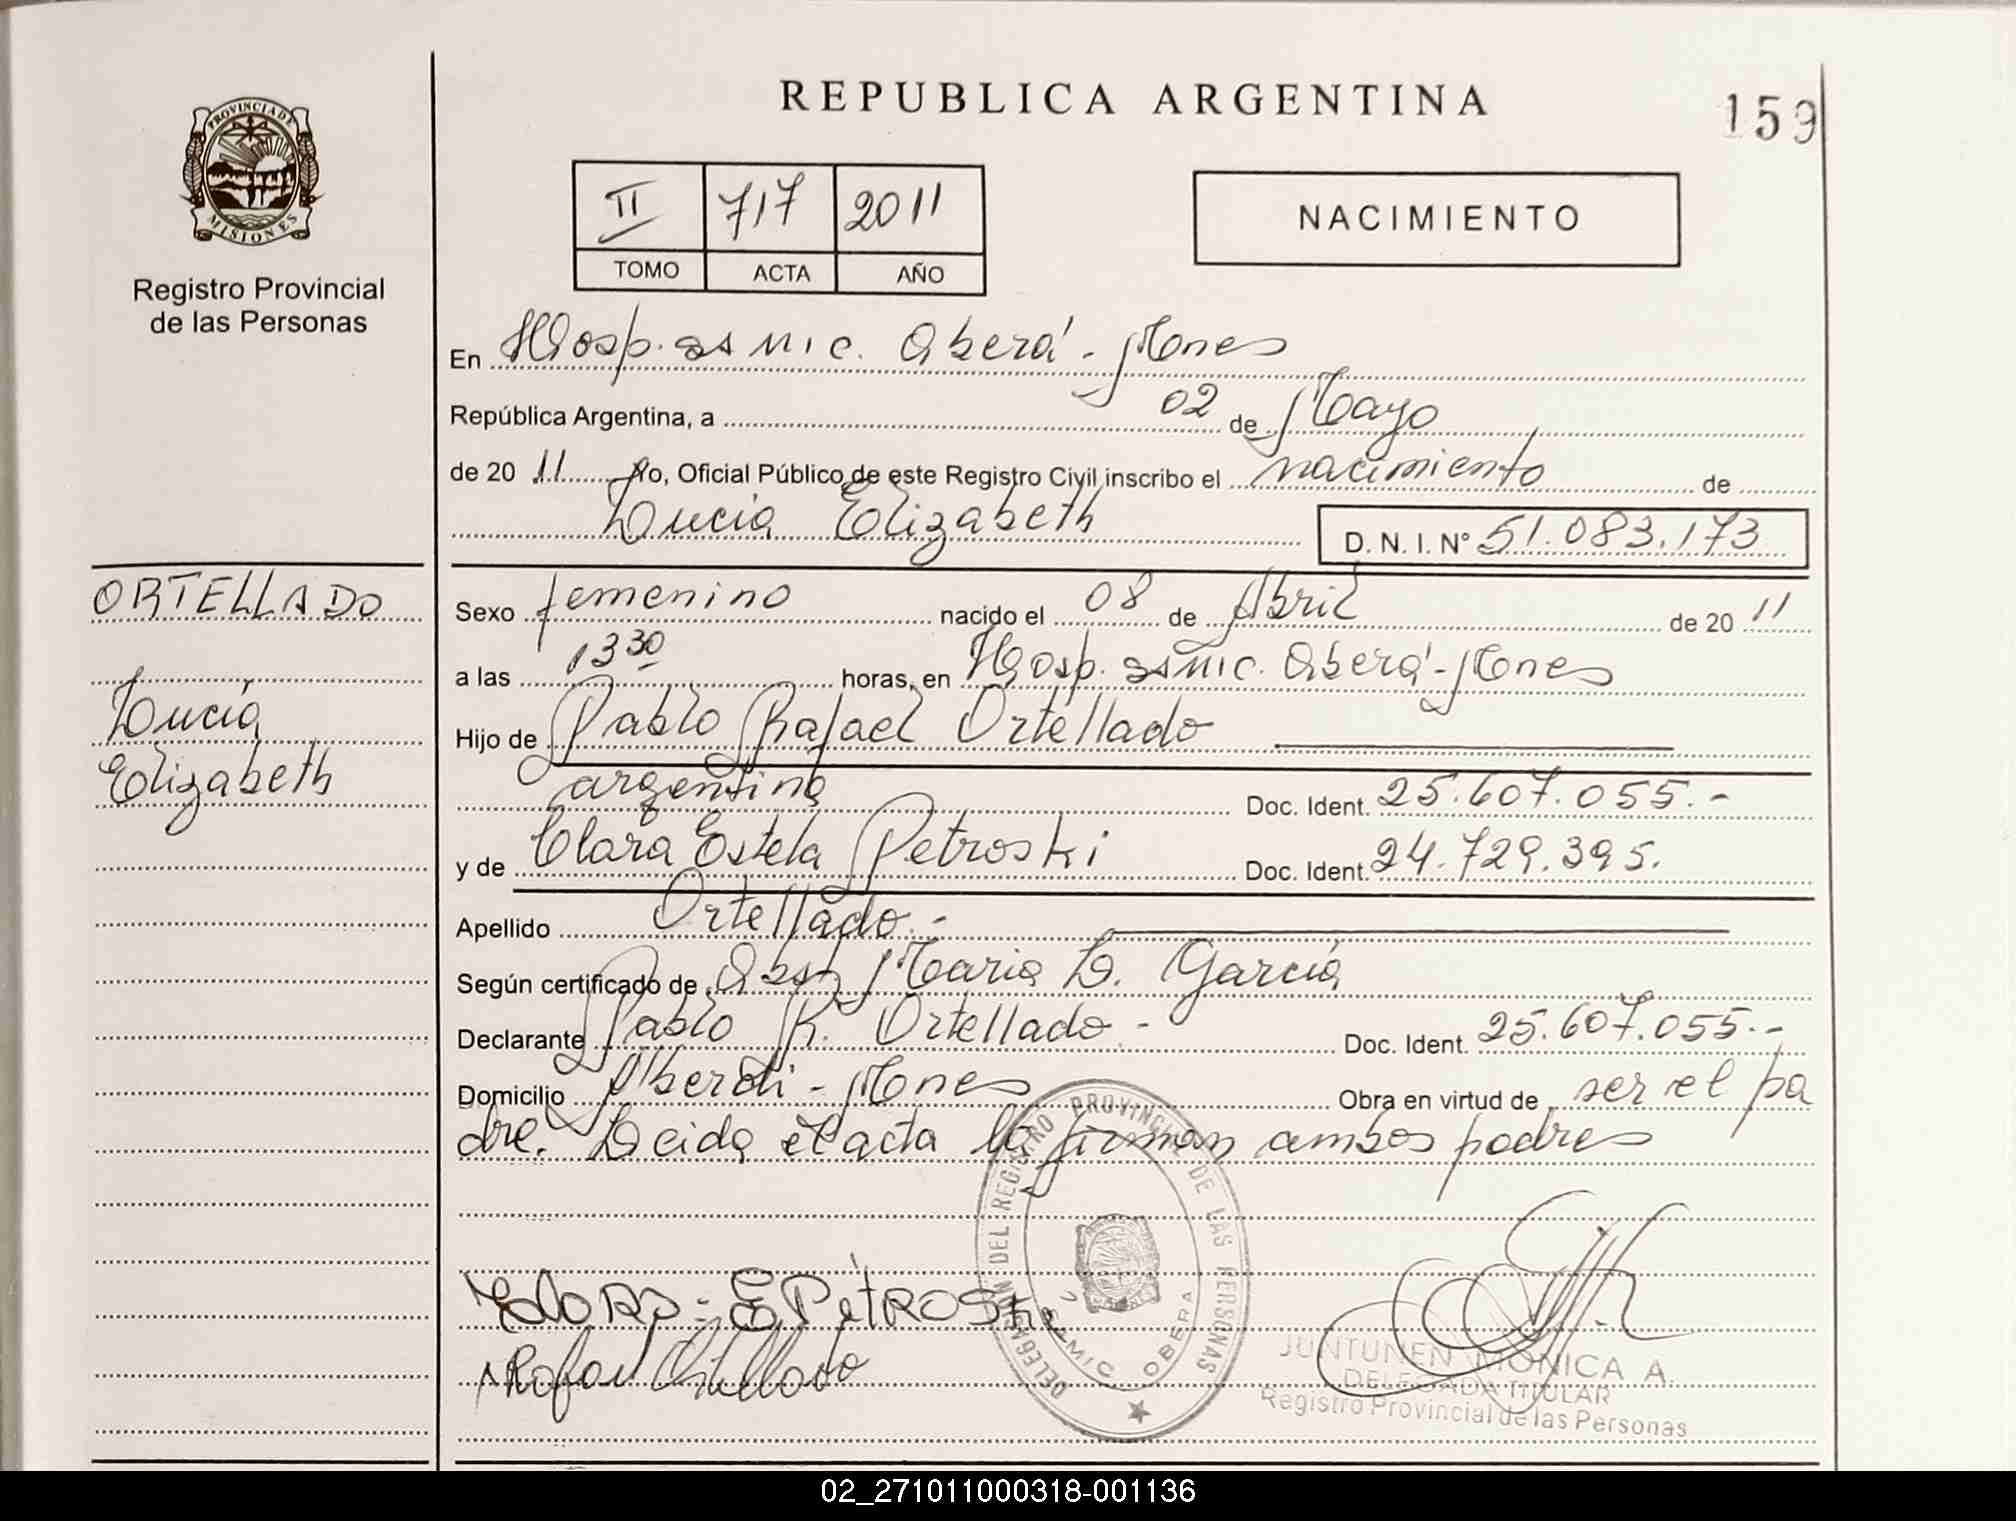 REPUBLICA ARGENTINA
159
PROVINCIA DE
MISIONES
Registro Provincial
de las Personas
II 717 2011
TOMO ACTA AÑO
NACIMIENTO
En Hosp. Samic. Oberá - Mones
República Argentina, a 02 de Mayo
de 2011 Yo, Oficial Público de este Registro Civil inscribo el nacimiento de
Lucía Elizabeth D. N. I. N° 51.083.173
ORTELLADO
Lucía
Elizabeth
Sexo femenino nacido el 08 de Abril de 2011
a las 13 30 horas, en Hosp. Samic. Oberá - Mones
Hijo de Pablo Rafael Ortellado
argentina Doc. Ident. 25.607.055.-
y de Clara Estela Petroski Doc. Ident. 24.729.395.
Apellido Ortellado.-
Según certificado de Obst. Maria L. García
Declarante Pablo R. Ortellado.- Doc. Ident. 25.607.055.-
Domicilio Alberdi - Mones Obra en virtud de ser el pa
dre. Leida el acta la firman ambos padres
DELEGACION DEL REGISTRO PROVINCIAL DE LAS PERSONAS
SAMIC OBERA
Clara E Petroski
Rafael Ortellado
JUNTUNEN MONICA A.
DELEGADA TITULAR
Registro Provincial de las Personas
02_271011000318-001136